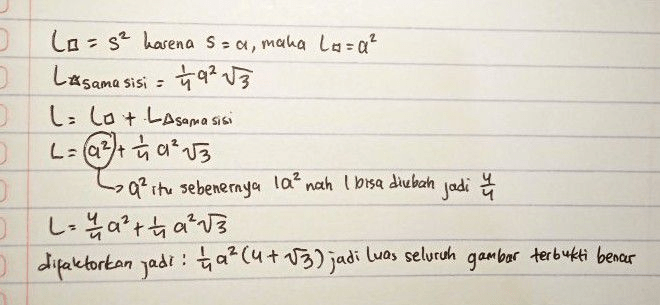 L□ = s² karena s = a, maka L□ = a²
L△sama sisi = 1/4 a² √3
L = L□ + L△sama sisi
L = a² + 1/4 a² √3
→ a² itu sebenernya 1a² nah 1 bisa diubah jadi 4/4
L = 4/4 a² + 1/4 a² √3
difaktorkan jadi : 1/4 a² (4 + √3) jadi luas seluruh gambar terbukti benar